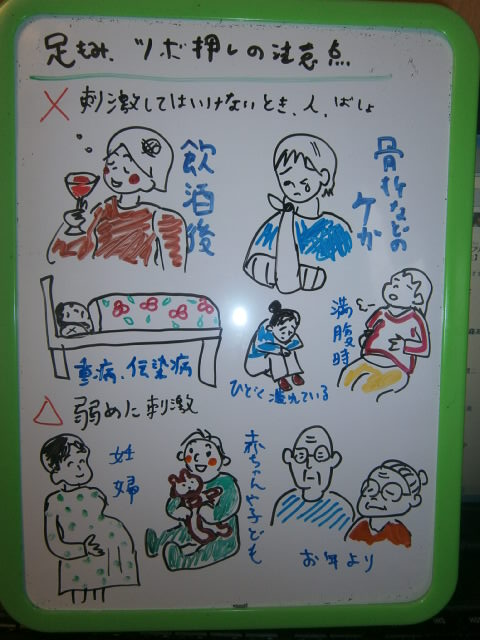 足もみ、ツボ押しの注意点
× 刺激してはいけないとき、人、ばしょ
飲酒後
骨折などの
ケガ
重病、伝染病
ひどく疲れている
満腹時
△ 弱めに刺激
妊婦
赤ちゃんや子ども
お年より